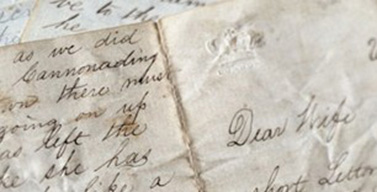 as we did
Cannonading
there must
going on up
as left the
she has
like a
Dear Wife
short Letter